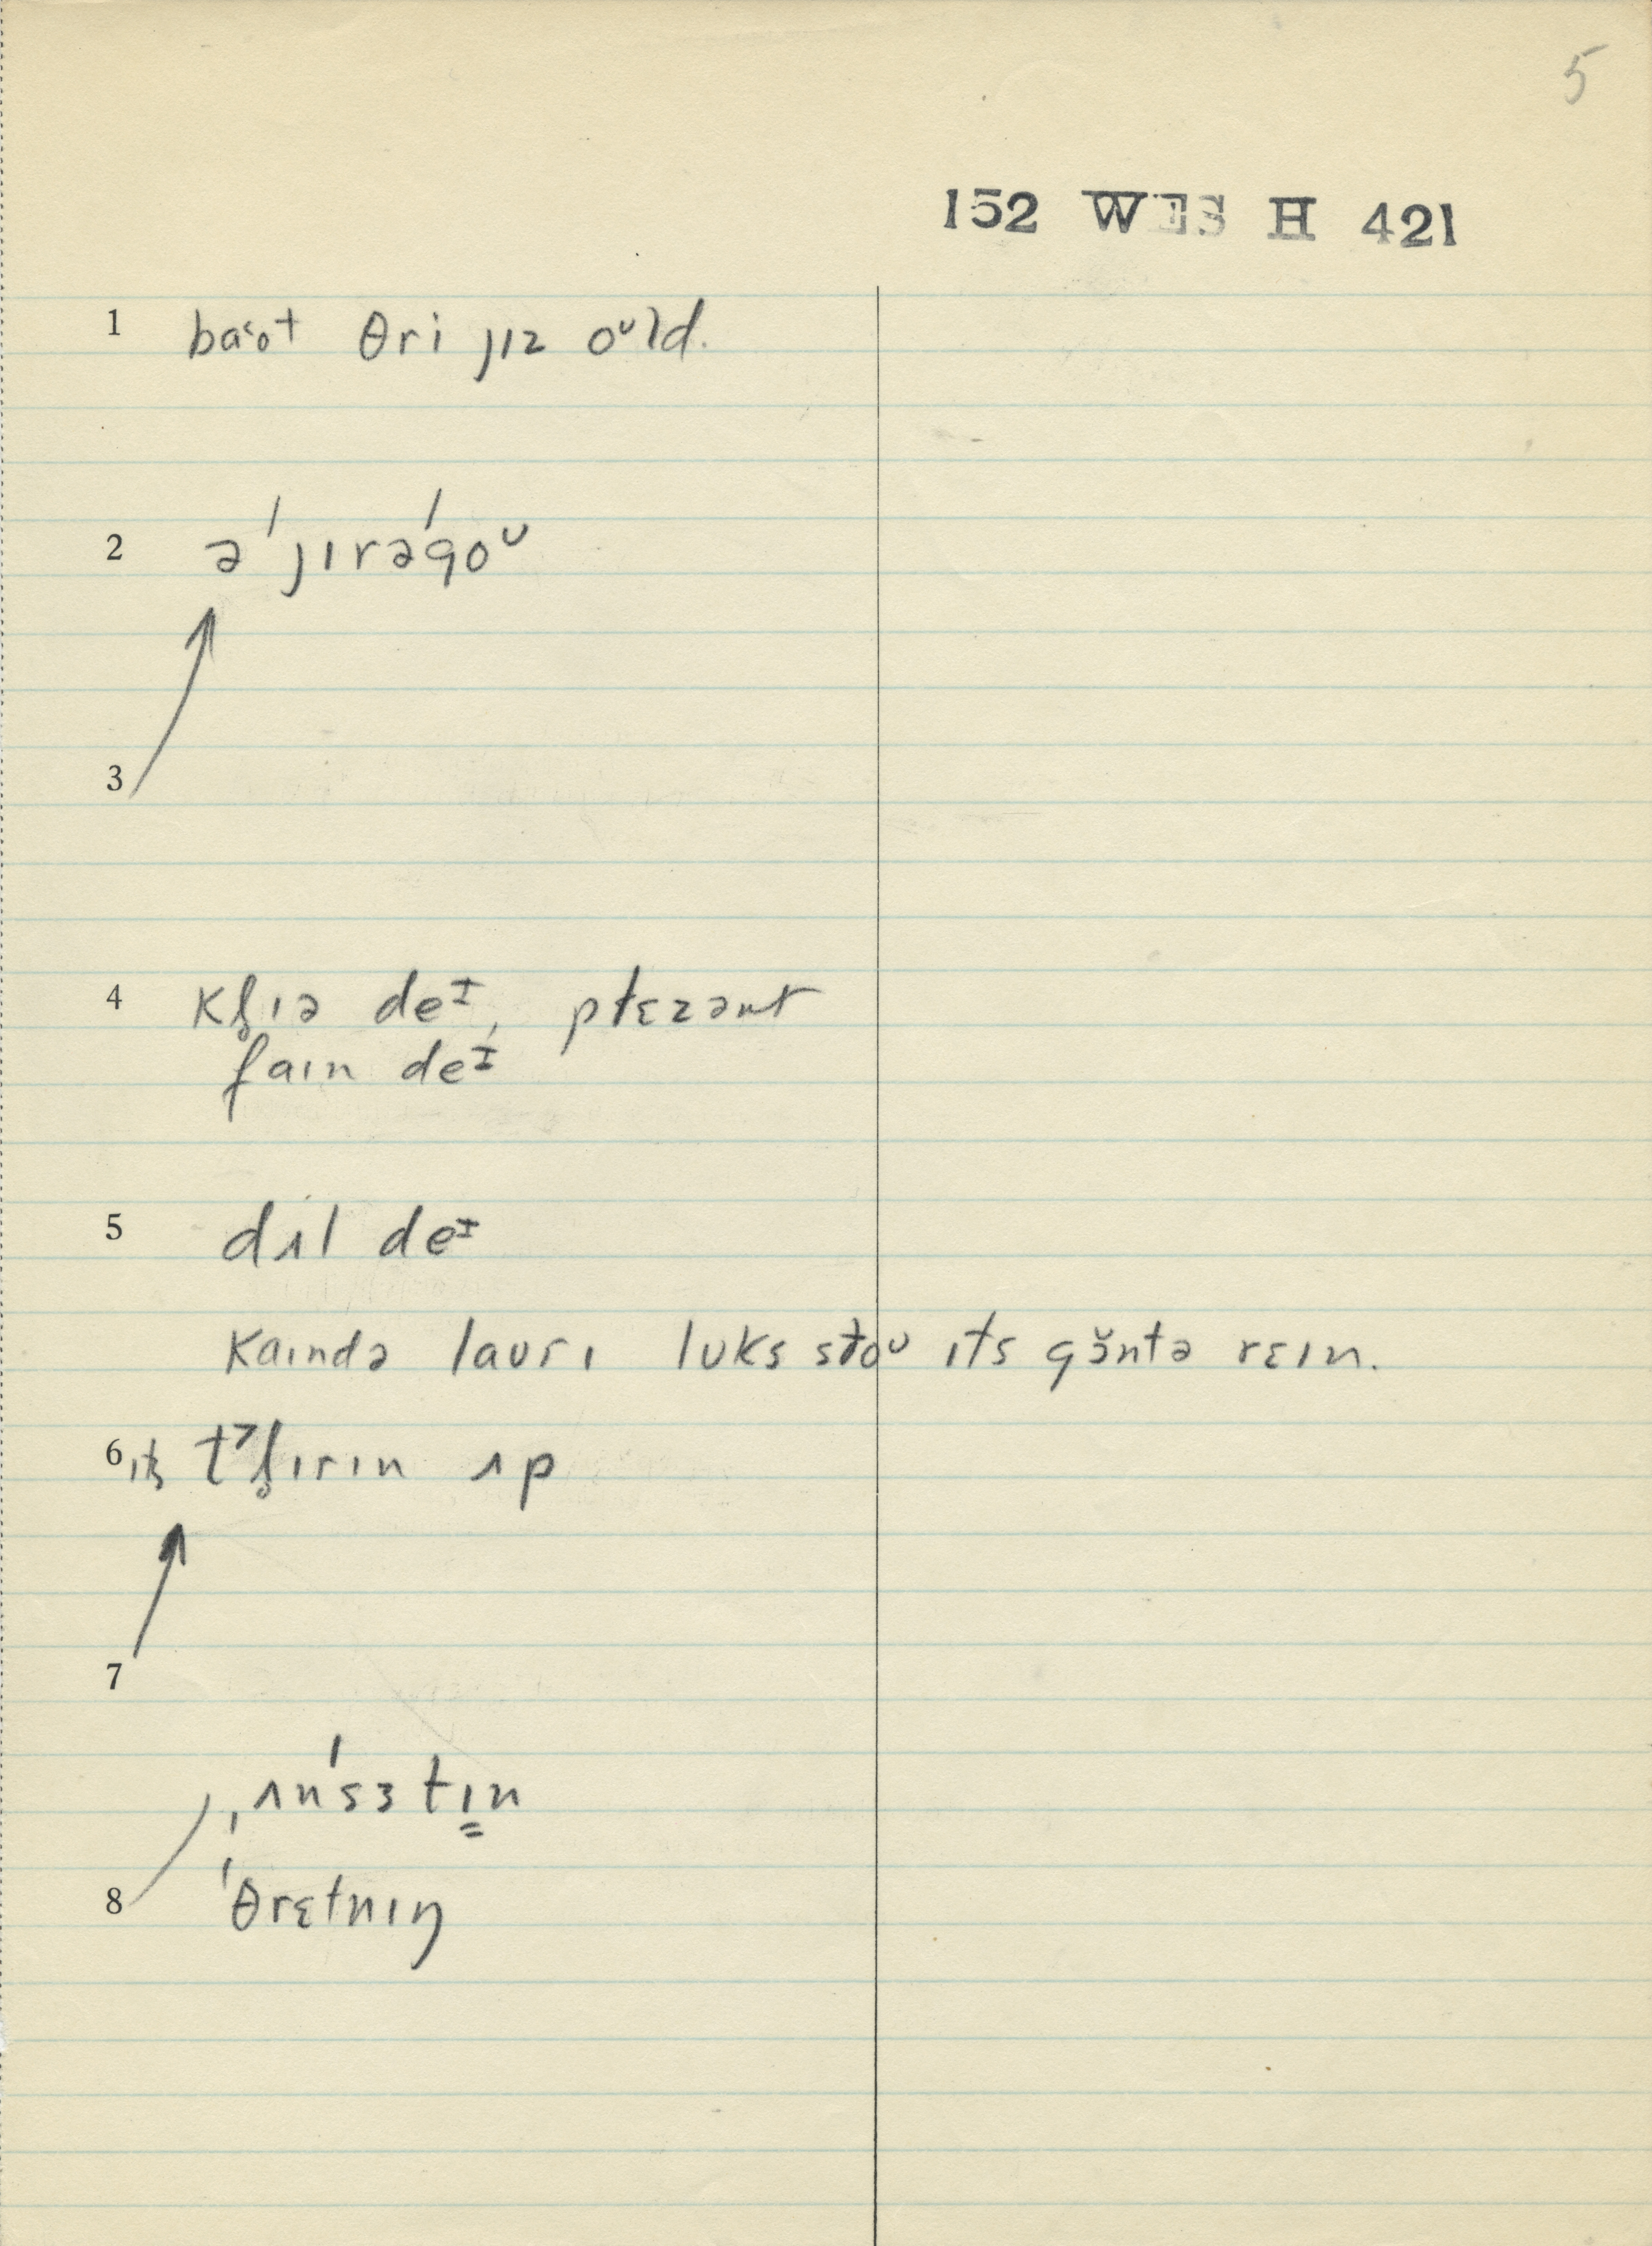 5
152 WES H 421
1 baˑo̜t θri jɪz oᶷld.
2 ə ˈjɪrəˈgoᶷ
3
4 kl̥ɪə deᶦ, pɫɛzənt
faɪn deᶦ,
5 dʌl deᶦ
kaɪndə laʊrɪ lʊks sɫoᶷ ɪts gɔ̆ntə rɛɪn.
6 ɪts tˀl̥ɪrɪn ʌp
7
ˌʌnˈsɜtɪn
8 ˈθrɛtnɪŋ